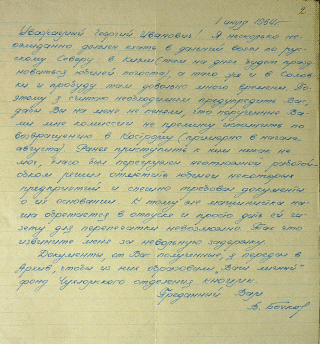 2
1 июля 1964 г.
Уважаемый Георгий Иванович! Я несколько не-
ожиданно должен ехать в дальний вояж по рус-
скому Северу: в Кижи (там на днях будет празд-
новаться юбилей погоста), а там уж и в Солов-
ки и пробуду там довольно много времени. По-
этому я считаю необходимым предупредить Вас,
дабы Вы на меня не пеняли, что порученные Ва-
ми мне комиссии не премину исполнить по
возвращению в Кострому (примерно в начале
августа). Ранее приступить к ним никак не
мог, благо был перегружен неотложной работой:
обком решил отметить юбилеи некоторых
предприятий и спешно требовал документы
о их основании. К тому же машинистка на-
ша обретается в отпуске и просто дать ей га-
зету для перепечатки невозможно. Так что
извините меня за невольную задержку.
Документы, от Вас полученные, я передал в
Архив, чтобы из них образовали "Ваш личный"
фонд Чухломского отделения
Преданный Вам
В. Бочков